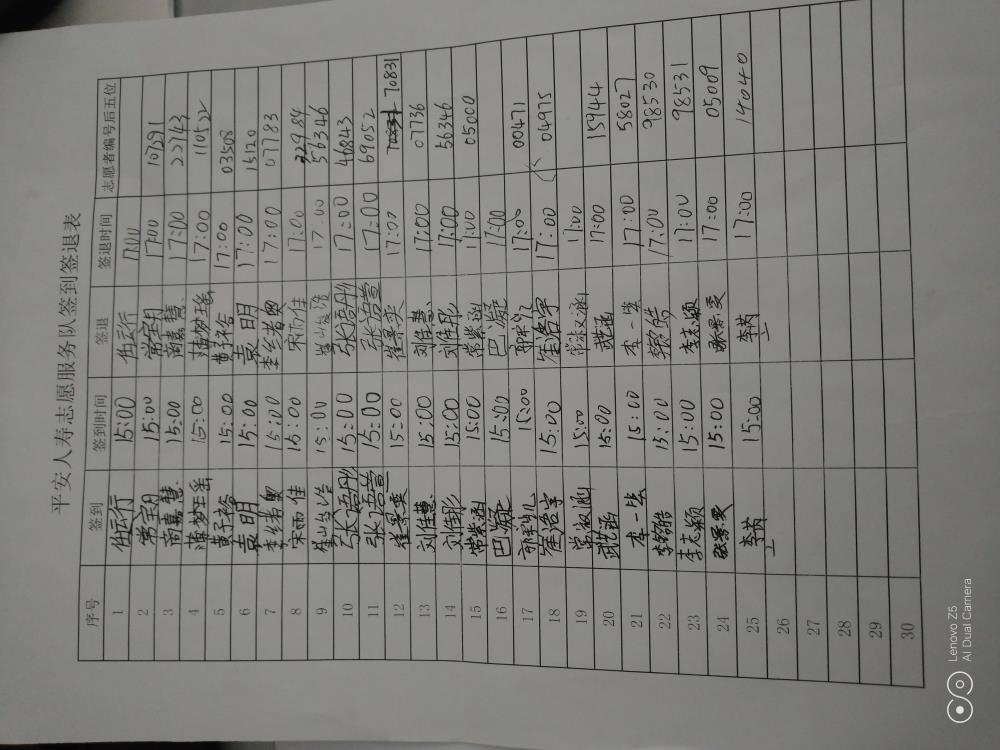 平安人寿志愿服务队签到签退表
序号 签到 签到时间 签退 签退时间 志愿者编号后五位
1 任云行 15:00 任云行 17:00
2 常宝月 15:00 常宝月 17:00 107291
3 商嘉慧 15:00 商嘉慧 17:00 22743
4 薄梦瑶 15:00 薄梦瑶 17:00 110522
5 黄子裕 15:00 黄子裕 17:00 03508
6 袁明 15:00 袁明 17:00 15120
7 15:00 17:00 07783
8 宋雨佳 15:00 宋雨佳 17:00 22984
9 15:00 17:00 56346
10 张语彤 15:00 张语彤 17:00 40843
11 张语萱 15:00 张语萱 17:00 69052
12 崔景奕 15:00 崔景奕 17:00 70831
13 刘佳慧 15:00 刘佳慧 17:00 07736
14 刘佳彤 15:00 刘佳彤 17:00 56346
15 常紫涵 15:00 常紫涵 17:00 05000
16 巴凝 15:00 巴凝 17:00
17 15:00 17:00 00471
18 崔洛宇 15:00 崔洛宇 17:00 04975
19 常淑涵 15:00 常淑涵 17:00
20 武涵 15:00 武涵 17:00 15944
21 李一毕 15:00 李一毕 17:00 58027
22 15:00 17:00 98530
23 李志颖 15:00 李志颖 17:00 98531
24 15:00 17:00 05009
25 李芮 15:00 李芮 17:00 14040
26
27
28
29
30
Lenovo Z5
AI Dual Camera